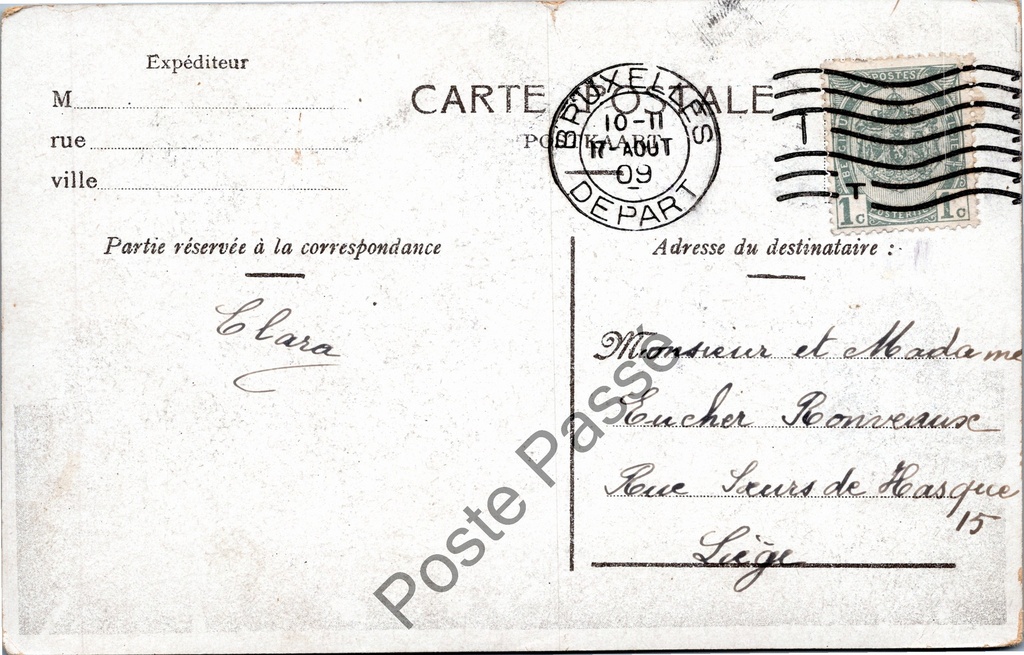 Expéditeur
M
rue
ville
CARTE POSTALE
POSTKAART
BRUXELLES
10-11
17 AOUT
09
DEPART
POSTES
T
T
1c POSTERIJEN 1c
Partie réservée à la correspondance
Adresse du destinataire :
Clara
Monsieur et Madame
Eucher Ronveaux
Rue Sœurs de Hasque
15
Liège
Poste Passé